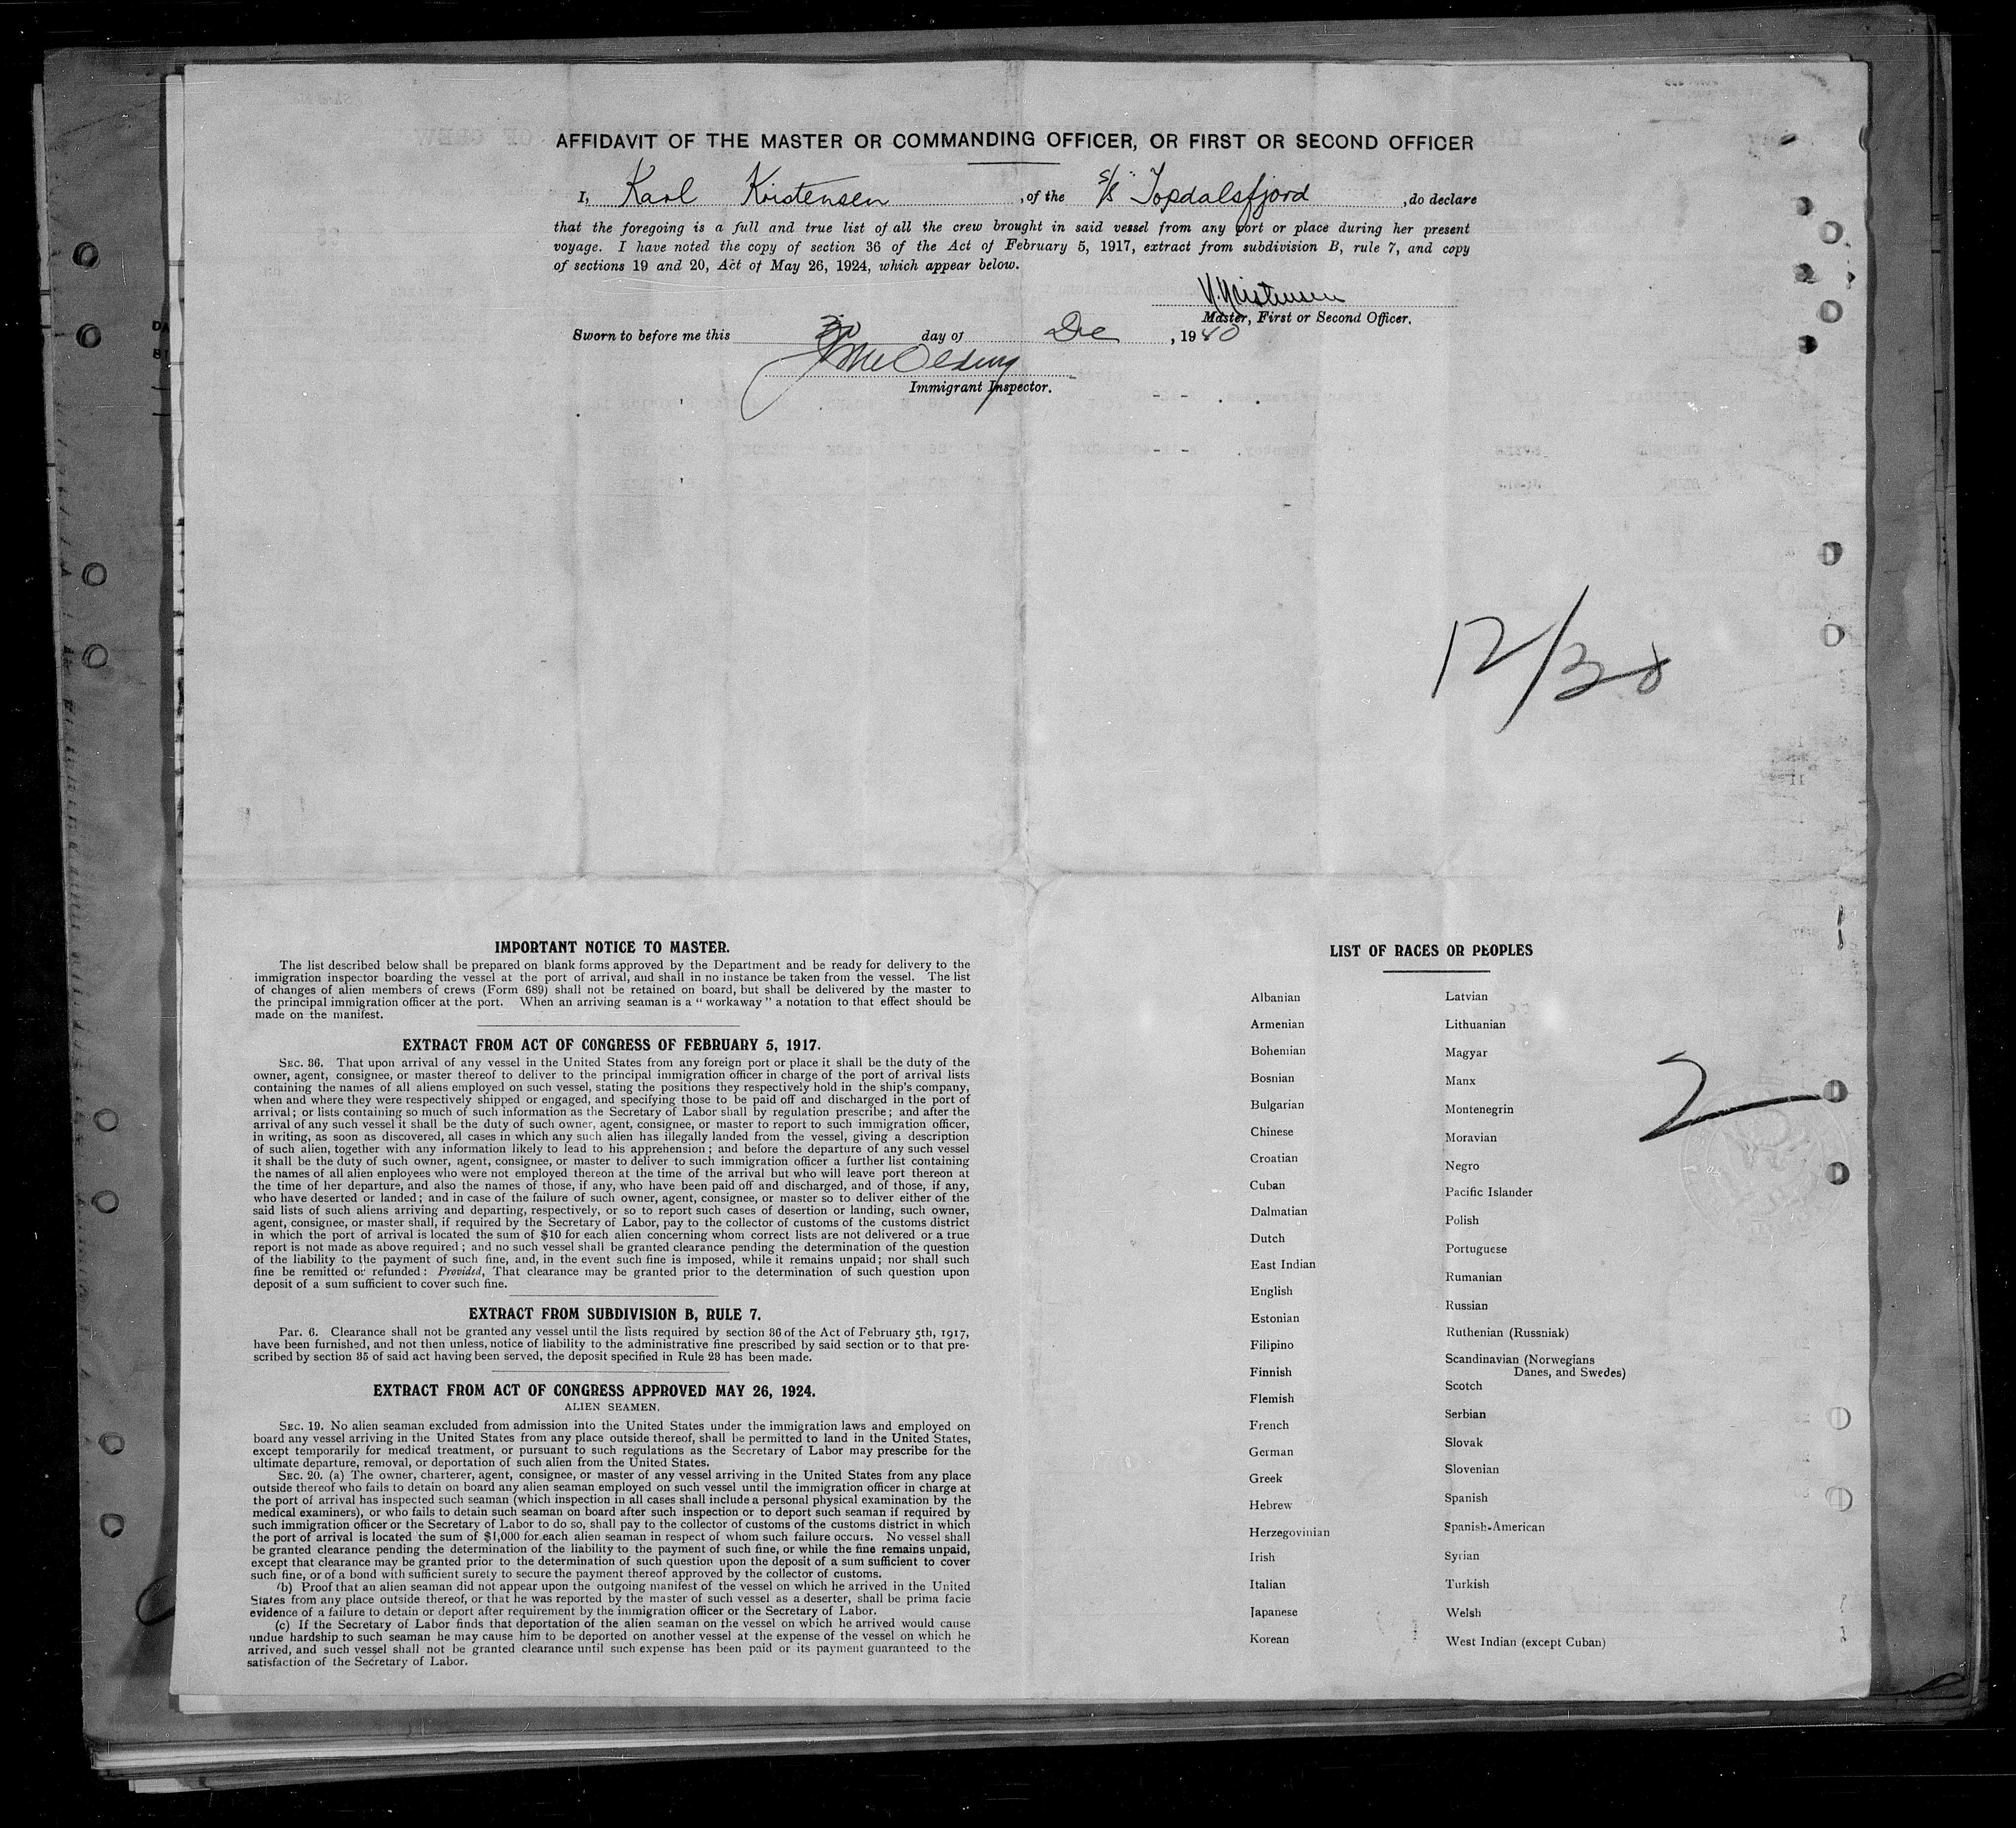 AFFIDAVIT OF THE MASTER OR COMMANDING OFFICER, OR FIRST OR SECOND OFFICER
I, Karl Kristensen, of the s/s "Topdalsfjord, do declare
that the foregoing is a full and true list of all the crew brought in said vessel from any port or place during her present
voyage. I have noted the copy of section 36 of the Act of February 5, 1917, extract from subdivision B, rule 7, and copy
of sections 19 and 20, Act of May 26, 1924, which appear below.
K. Kristensen
Master, First or Second Officer.
Sworn to before me this 30 day of Dec, 1940
Immigrant Inspector.
12/30
IMPORTANT NOTICE TO MASTER.
The list described below shall be prepared on blank forms approved by the Department and be ready for delivery to the
immigration inspector boarding the vessel at the port of arrival, and shall in no instance be taken from the vessel. The list
of changes of alien members of crews (Form 689) shall not be retained on board, but shall be delivered by the master to
the principal immigration officer at the port. When an arriving seaman is a "workaway" a notation to that effect should be
made on the manifest.
EXTRACT FROM ACT OF CONGRESS OF FEBRUARY 5, 1917.
SEC. 36. That upon arrival of any vessel in the United States from any foreign port or place it shall be the duty of the
owner, agent, consignee, or master thereof to deliver to the principal immigration officer in charge of the port of arrival lists
containing the names of all aliens employed on such vessel, stating the positions they respectively hold in the ship's company,
when and where they were respectively shipped or engaged, and specifying those to be paid off and discharged in the port of
arrival; or lists containing so much of such information as the Secretary of Labor shall by regulation prescribe; and after the
arrival of any such vessel it shall be the duty of such owner, agent, consignee, or master to report to such immigration officer,
in writing, as soon as discovered, all cases in which any such alien has illegally landed from the vessel, giving a description
of such alien, together with any information likely to lead to his apprehension; and before the departure of any such vessel
it shall be the duty of such owner, agent, consignee, or master to deliver to such immigration officer a further list containing
the names of all alien enployees who were not employed thereon at the time of the arrival but who will leave port thereon at
the time of her departure, and also the names of those, if any, who have been paid off and discharged, and of those, if any,
who have deserted or landed; and in case of the failure of such owner, agent, consignee, or master so to deliver either of the
said lists of such aliens arriving and departing, respectively, or so to report such cases of desertion or landing, such owner,
agent, consignee, or master shall, if required by the Secretary of Labor, pay to the collector of customs of the customs district
in which the port of arrival is located the sum of $10 for each alien concerning whom correct lists are not delivered or a true
report is not made as above required; and no such vessel shall be granted clearance pending the determination of the question
of the liability to the payment of such fine, and, in the event such fine is imposed, while it remains unpaid; nor shall such
fine be remitted or refunded: Provided, That clearance may be granted prior to the determination of such question upon
deposit of a sum sufficient to cover such fine.
EXTRACT FROM SUBDIVISION B, RULE 7.
Par. 6. Clearance shall not be granted any vessel until the lists required by section 36 of the Act of February 5th, 1917,
have been furnished, and not then unless, notice of liability to the administrative fine prescribed by said section or to that pre-
scribed by section 35 of said act having been served, the deposit specified in Rule 28 has been made.
EXTRACT FROM ACT OF CONGRESS APPROVED MAY 26, 1924.
ALIEN SEAMEN.
SEC. 19. No alien seaman excluded from admission into the United States under the immigration laws and employed on
board any vessel arriving in the United States from any place outside thereof, shall be permitted to land in the United States,
except temporarily for medical treatment, or pursuant to such regulations as the Secretary of Labor may prescribe for the
ultimate departure, removal, or deportation of such alien from the United States.
SEC. 20. (a) The owner, charterer, agent, consignee, or master of any vessel arriving in the United States from any place
outside thereof who fails to detain on board any alien seaman employed on such vessel until the immigration officer in charge at
the port of arrival has inspected such seaman (which inspection in all cases shall include a personal physical examination by the
medical examiners), or who fails to detain such seaman on board after such inspection or to deport such seaman if required by
such immigration officer or the Secretary of Labor to do so, shall pay to the collector of customs of the customs district in which
the port of arrival is located the sum of $1,000 for each alien seaman in respect of whom such failure occurs. No vessel shall
be granted clearance pending the determination of the liability to the payment of such fine, or while the fine remains unpaid,
except that clearance may be granted prior to the determination of such question upon the deposit of a sum sufficient to cover
such fine, or of a bond with sufficient surely to secure the payment thereof approved by the collector of customs.
(b) Proof that an alien seaman did not appear upon the outgoing manifest of the vessel on which he arrived in the United
States from any place outside thereof, or that he was reported by the master of such vessel as a deserter, shall be prima facie
evidence of a failure to detain or deport after requirement by the immigration officer or the Secretary of Labor.
(c) If the Secretary of Labor finds that deportation of the alien seaman on the vessel on which he arrived would cause
undue hardship to such seaman he may cause him to be deported on another vessel at the expense of the vessel on which he
arrived, and such vessel shall not be granted clearance until such expense has been paid or its payment guaranteed to the
satisfaction of the Secretary of Labor.
LIST OF RACES OR PEOPLES
Albanian
Armenian
Bohemian
Bosnian
Bulgarian
Chinese
Croatian
Cuban
Dalmatian
Dutch
East Indian
English
Estonian
Filipino
Finnish
Flemish
French
German
Greek
Hebrew
Herzegovinian
Irish
Italian
Japanese
Korean
Latvian
Lithuanian
Magyar
Manx
Montenegrin
Moravian
Negro
Pacific Islander
Polish
Portuguese
Rumanian
Russian
Ruthenian (Russniak)
Scandinavian (Norwegians
Danes, and Swedes)
Scotch
Serbian
Slovak
Slovenian
Spanish
Spanish-American
Syrian
Turkish
Welsh
West Indian (except Cuban)
2